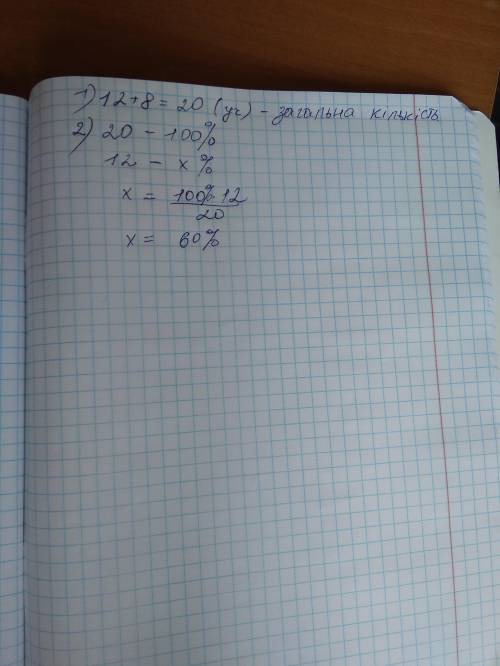 1) 12+8 = 20 (уч) - загальна кількість
2) 20 - 100%
12 - x %
x = 100%·12 / 20
x = 60%